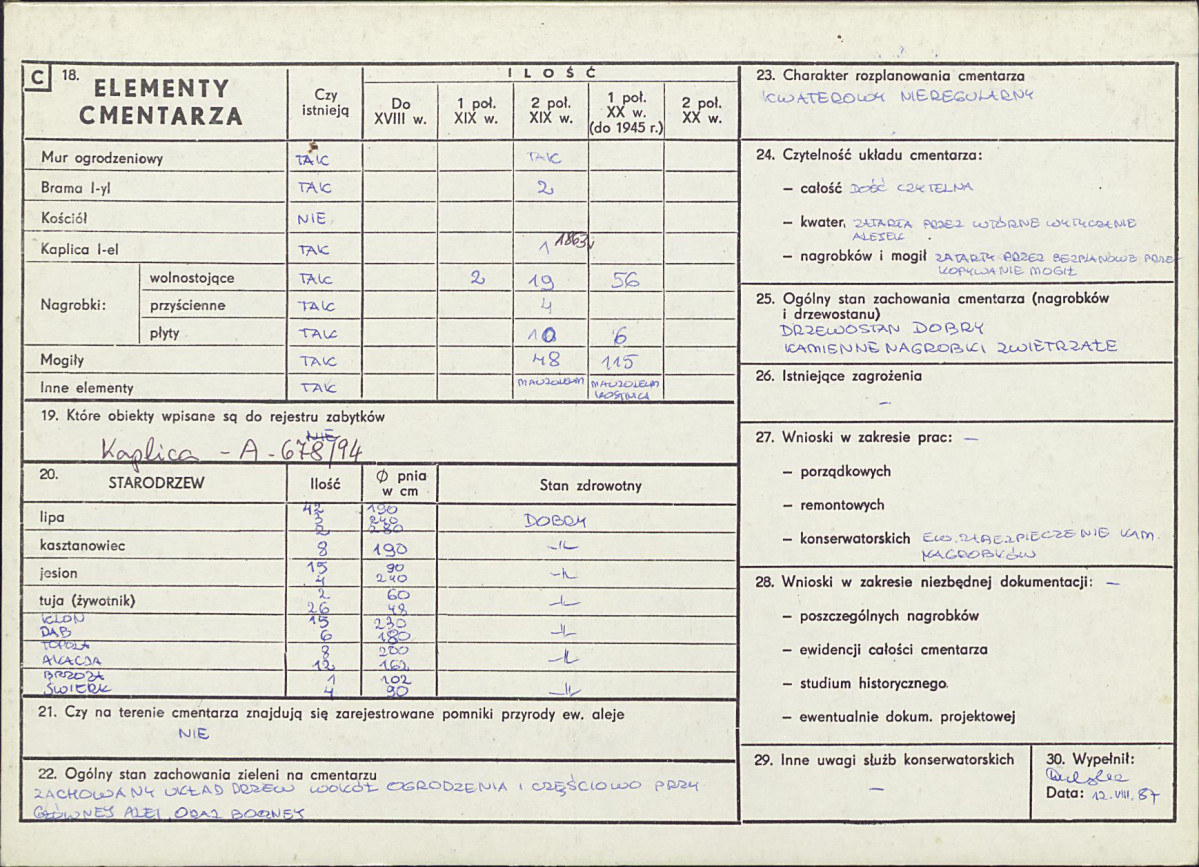 C 18. ELEMENTY CMENTARZA
Czy istnieją
ILOŚĆ
Do XVIII w.
1 poł. XIX w.
2 poł. XIX w.
1 poł. XX w. (do 1945 r.)
2 poł. XX w.
Mur ogrodzeniowy TAK TAK
Brama I-yl TAK 2
Kościół NIE
Kaplica I-el TAK 1 1863
Nagrobki:
wolnostojące TAK 2 19 56
przyścienne TAK 4
płyty TAK 10 6
Mogiły TAK 48 115
Inne elementy TAK MAUZOLEUM MAUZOLEUM
KOSTNICA
19. Które obiekty wpisane są do rejestru zabytków
NIE
Kaplica - A - 678/94
20. STARODRZEW Ilość Ø pnia w cm Stan zdrowotny
lipa 42 190
3 240 DOBRY
2 280
kasztanowiec 8 190 -"-
jesion 15 90
4 240 -"-
tuja (żywotnik) 2 60
26 48 -"-
KLON 15 230
DĄB 6 180 -"-
TOPOLA 8 200
AKACJA 12 162 -"-
BRZOZA 1 102
ŚWIERK 4 90 -"-
21. Czy na terenie cmentarza znajdują się zarejestrowane pomniki przyrody ew. aleje
NIE
22. Ogólny stan zachowania zieleni na cmentarzu
ZACHOWANY UKŁAD DRZEW WOKÓŁ OGRODZENIA I CZĘŚCIOWO PRZY
GŁÓWNEJ ALEI ORAZ BOCZNEJ
23. Charakter rozplanowania cmentarza
KWATEROWY NIEREGULARNY
24. Czytelność układu cmentarza:
– całość DOŚĆ CZYTELNA
– kwater, ZATARTA PRZEZ WTÓRNE WYTYCZENIE
ALEJEK
– nagrobków i mogił ZATARTY PRZEZ BEZPLANOWE PRZE
KOPYWANIE MOGIŁ
25. Ogólny stan zachowania cmentarza (nagrobków
i drzewostanu)
DRZEWOSTAN DOBRY
KAMIENNE NAGROBKI ZWIETRZAŁE
26. Istniejące zagrożenia
–
27. Wnioski w zakresie prac: –
– porządkowych
– remontowych
– konserwatorskich EW. ZABEZPIECZENIE KAM.
NAGROBKÓW
28. Wnioski w zakresie niezbędnej dokumentacji: –
– poszczególnych nagrobków
– ewidencji całości cmentarza
– studium historycznego
– ewentualnie dokum. projektowej
29. Inne uwagi służb konserwatorskich
–
30. Wypełnił:
Data: 12.VIII.87